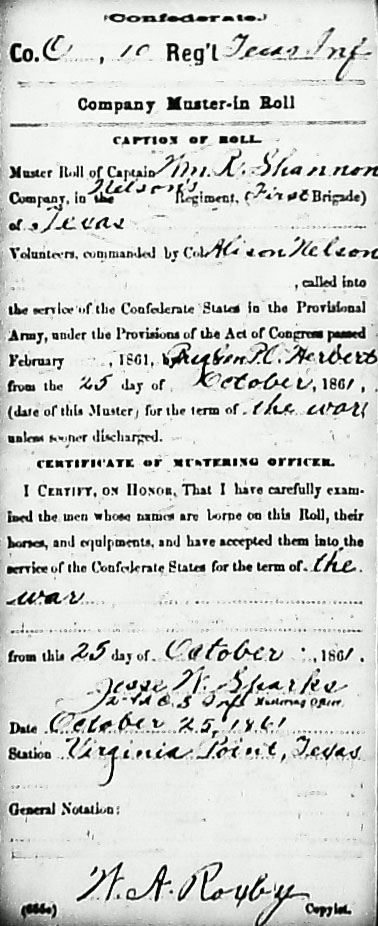 (Confederate.)
Co. C, 10 Reg't Texas Inf
Company Muster-in Roll
CAPTION OF ROLL.
Muster Roll of Captain Wm. R. Shannon
Company, in the Nelson's Regiment, (First Brigade)
of Texas
Volunteers, commanded by Col. Alison Nelson
, called into
the service of the Confederate States in the Provisional
Army, under the Provisions of the Act of Congress passed
February , 1861, by P.C. Herbert
from the 25 day of October, 1861,
(date of this Muster) for the term of the war
unless sooner discharged.
CERTIFICATE OF MUSTERING OFFICER.
I CERTIFY, ON HONOR, That I have carefully exam-
ined the men whose names are borne on this Roll, their
horses, and equipments, and have accepted them into the
service of the Confederate States for the term of the
war
from this 25 day of October, 1861.
Jesse W. Sparks
2nd Lt C S Inf Mustering Officer.
Date October 25, 1861
Station Virginia Point, Texas
General Notation:
W. A. Roxby
(656c) Copyist.